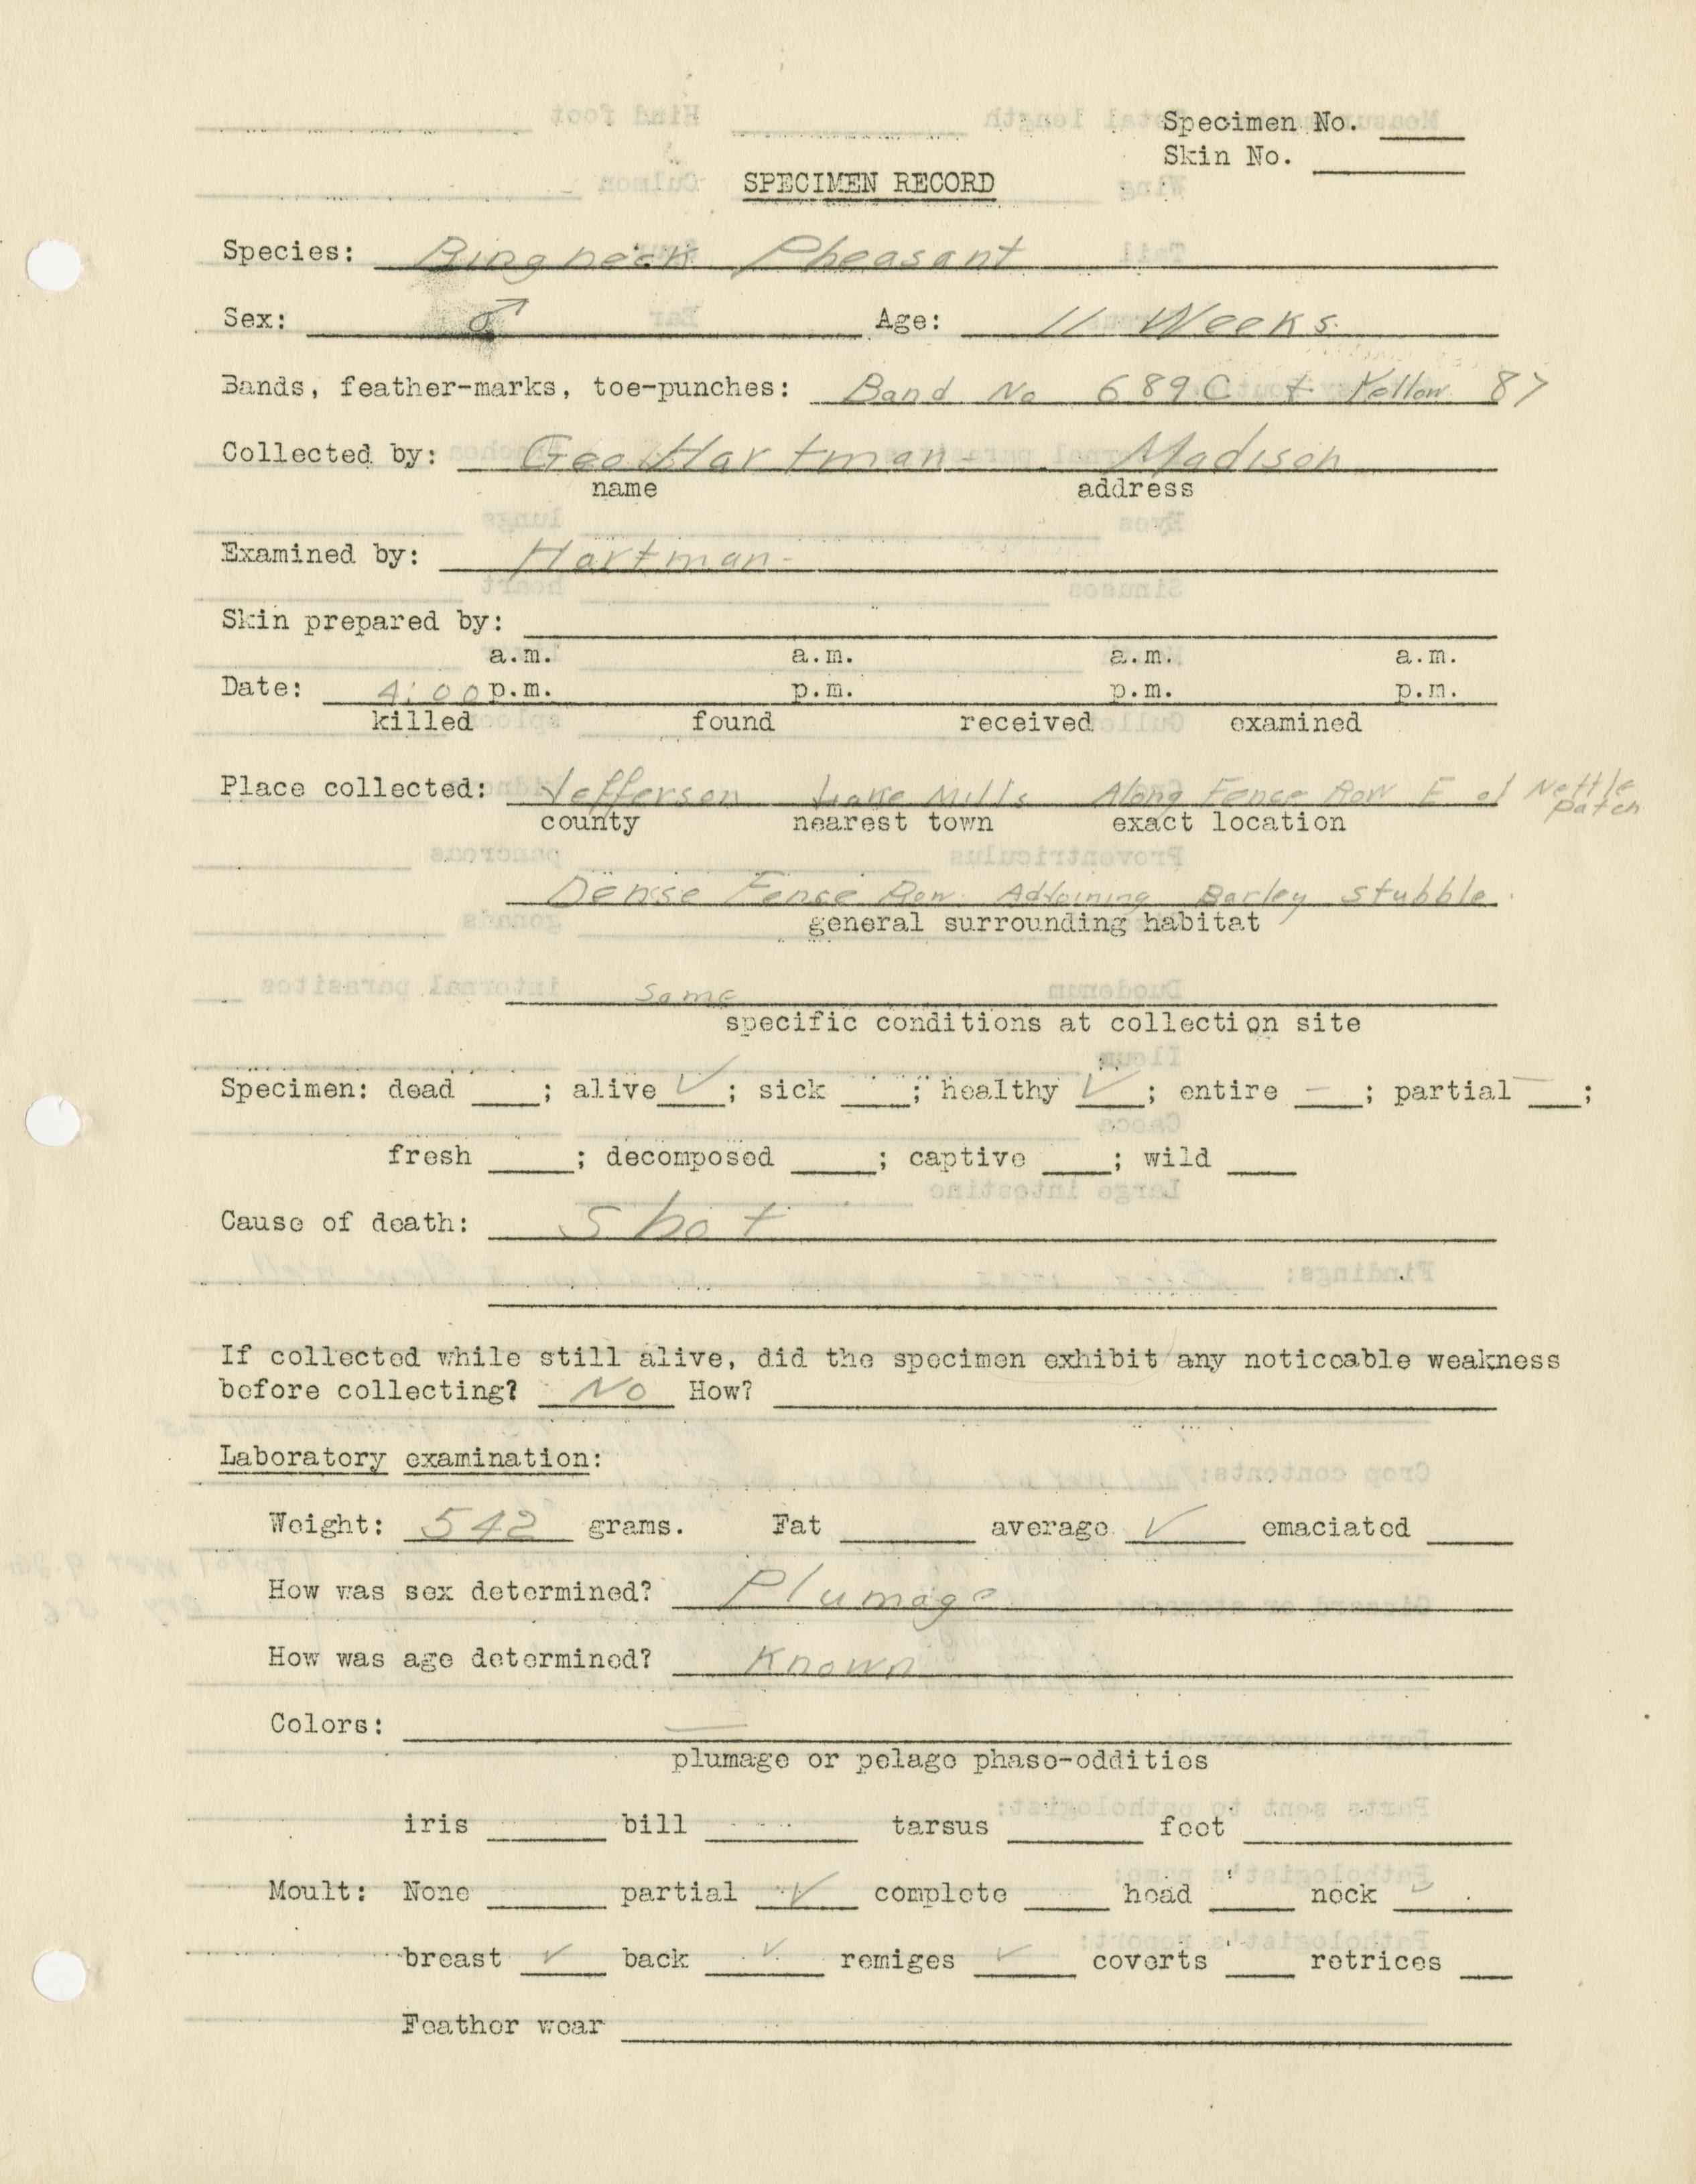 Specimen No. ____
Skin No. ____
SPECIMEN RECORD
Species: Ringneck Pheasant
Sex: ♂ Age: 11 Weeks.
Bands, feather-marks, toe-punches: Band No 689C + Yellow 87
Collected by: Geo Hartman- Madison
name address
Examined by: Hartman-
Skin prepared by: ____
a.m. a.m. a.m. a.m.
Date: 4:00 p.m. p.m. p.m. p.m.
killed found received examined
Place collected: Jefferson Lake Mills Along Fence Row E of Nettle
patch
county nearest town exact location
Dense Fence Row Adjoining Barley stubble.
general surrounding habitat
same
specific conditions at collection site
Specimen: dead ____; alive ✓; sick ____; healthy ✓; entire —; partial —;
fresh ____; decomposed ____; captive ____; wild ____
Cause of death: Shot
If collected while still alive, did the specimen exhibit any noticeable weakness
before collecting? No How? ____
Laboratory examination:
Weight: 542 grams. Fat ____ average ✓ emaciated ____
How was sex determined? Plumage
How was age determined? Known
Colors: —
plumage or pelage phase-oddities
iris ____ bill ____ tarsus ____ foot ____
Moult: None ____ partial ✓ complete ____ head ____ neck ✓
breast ✓ back ✓ remiges ✓ coverts ____ retrices ____
Feather wear ____